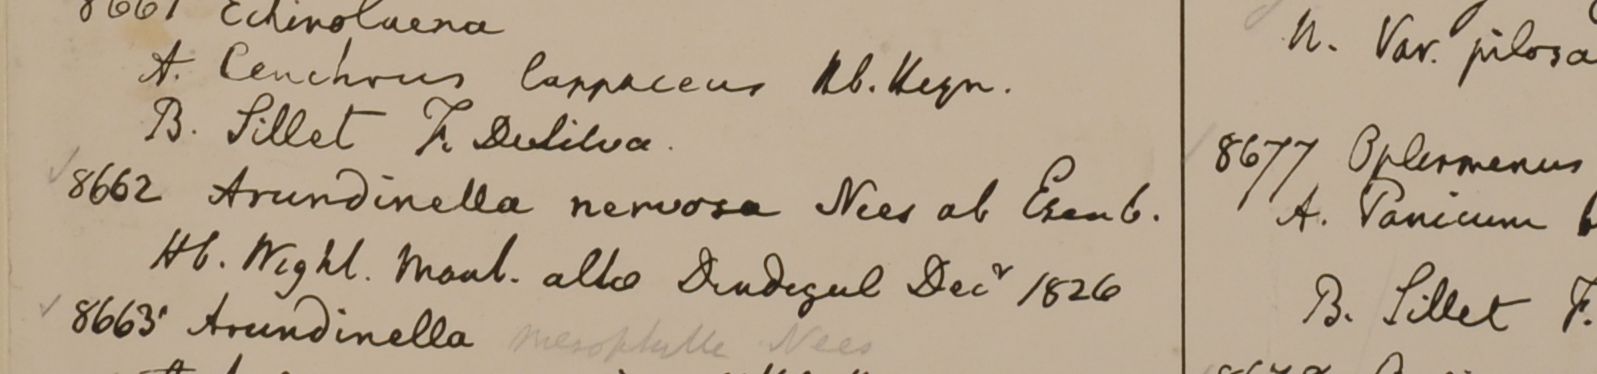 8661 Echinolaena
A. Cenchrus lappaceus Hb. Heyn.
B. Sillet F. DeSilva.
8662 Arundinella nervosa Nees ab Esenb.
Hb. Wight. Mont. alto Dindegul Decr 1826
8663 Arundinella mesophylla Nees
N. Var. pilosa
8677 Oplismenus
A. Panicum
B. Sillet F.